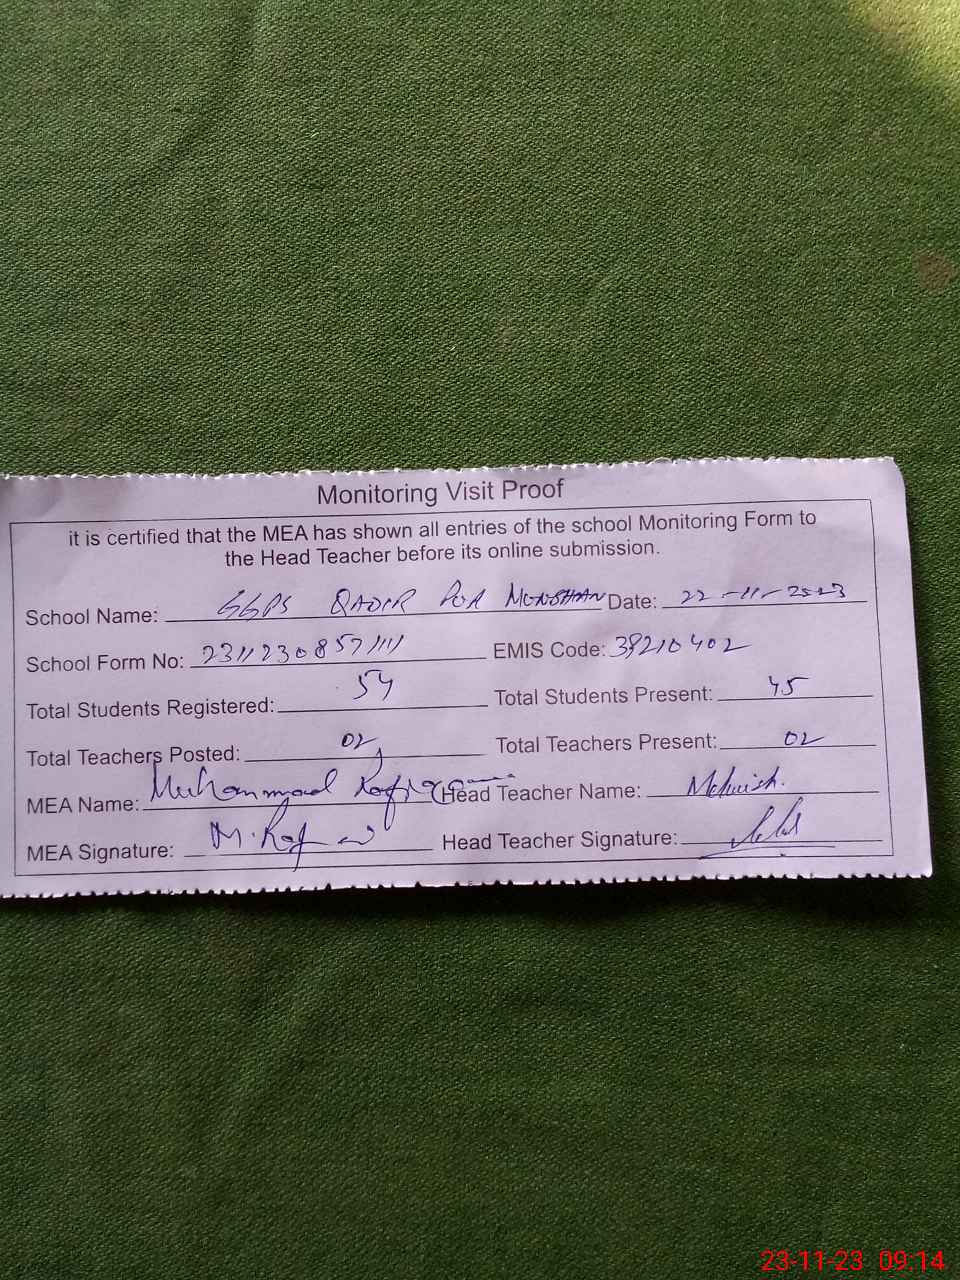 Monitoring Visit Proof
it is certified that the MEA has shown all entries of the school Monitoring Form to
the Head Teacher before its online submission.
School Name: GGPS QADIR POR MONSHAN Date: 22-11-2023
School Form No: 2311230857111 EMIS Code: 38210402
Total Students Registered: 54 Total Students Present: 45
Total Teachers Posted: 02 Total Teachers Present: 02
MEA Name: Muhammad Head Teacher Name: Mehwish.
MEA Signature: M. Head Teacher Signature:
23-11-23 09:14